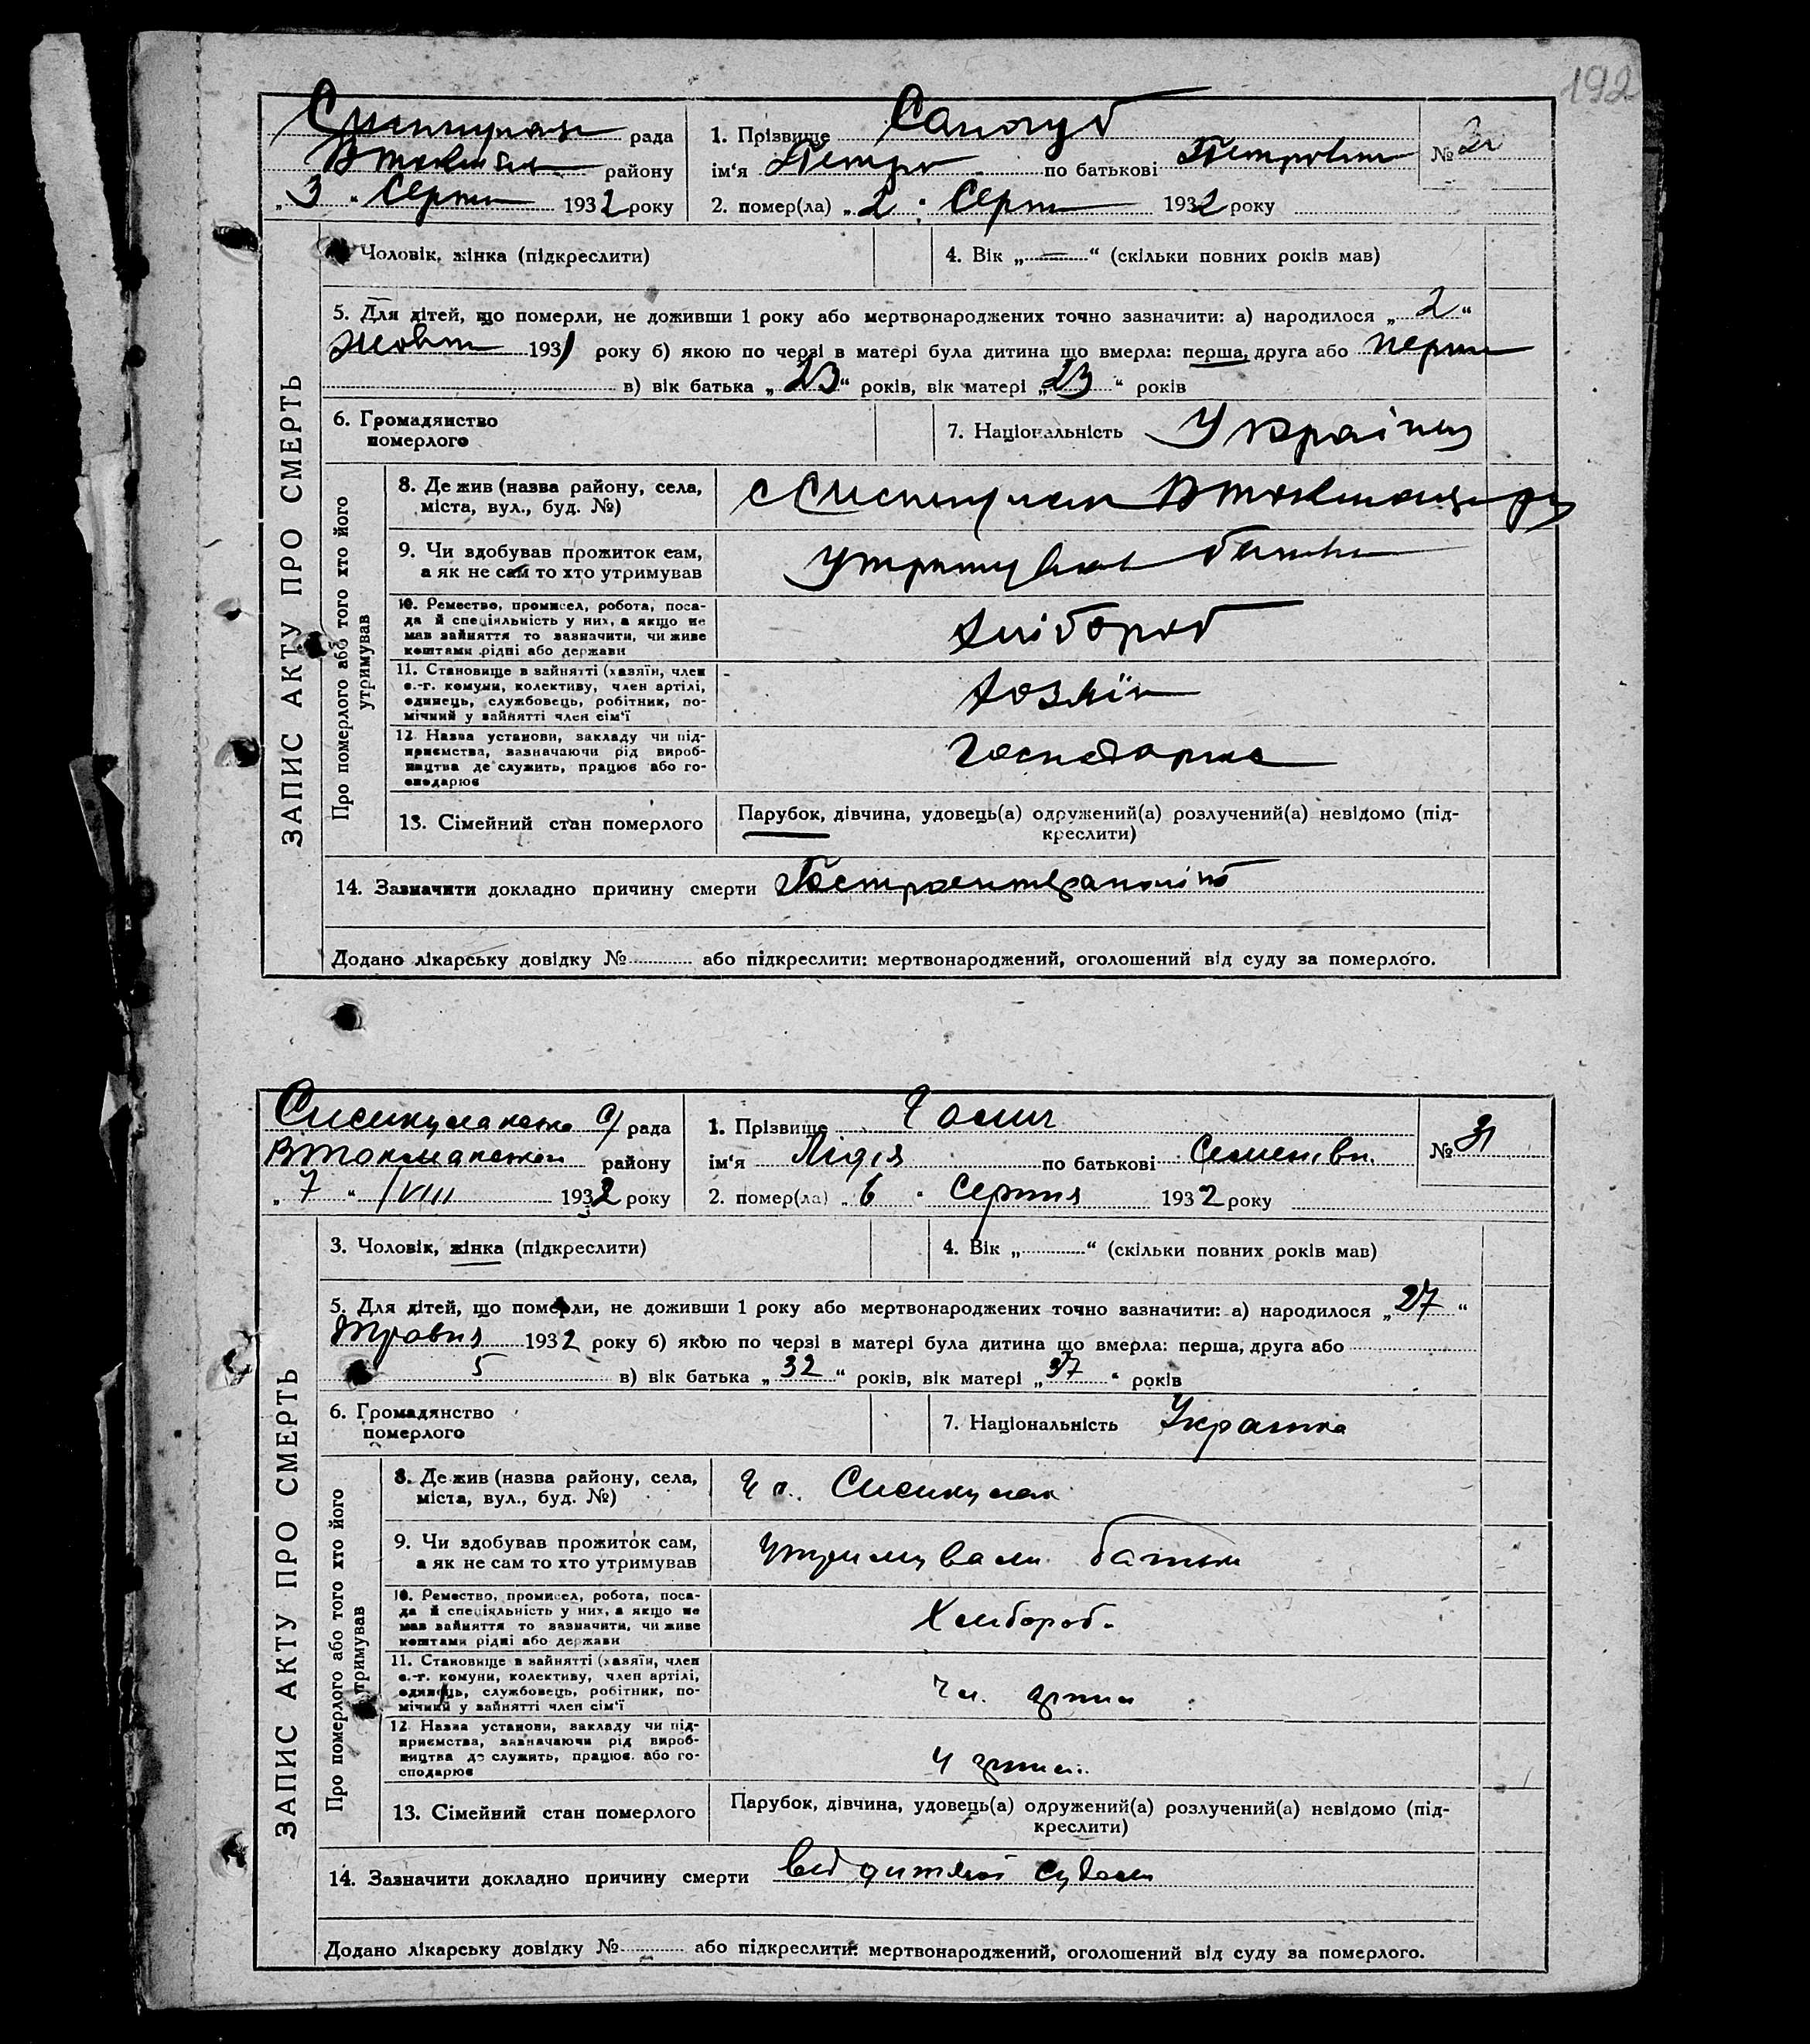 192
рада
району
„3“ Серпн 1932 року
1. Прізвище Сологуб
ім‘я Петро по батькові Петрович
№
2. помер(ла) „2“ Серпн 1932 року
ЗАПИС АКТУ ПРО СМЕРТЬ
Чоловік, жінка (підкреслити)
4. Вік „—“ (скільки повних років мав)
5. Для дітей, що померли, не доживши 1 року або мертвонароджених точно зазначити: а) народилося „2“
Жовтн 1931 року б) якою по черзі в матері була дитина що вмерла: перша, друга або перша
в) вік батька „23“ років, вік матері „23“ років
6. Громадянство
померлого
7. Національність Українец
Про померлого або того хто його
утримував
8. Де жив (назва району, села,
міста, вул., буд. №)
9. Чи вдобував прожиток сам,
а як не сам то хто утримував
утримував батько
10. Ремество, промисел, робота, поса-
да й спеціяльність у них, а якщо не
мав зайняття то зазначити, чи живе
коштами рідні або держави
Хлібороб
11. Становище в зайнятті (хазяїн, член
с.-г. комуни, колективу, член артілі,
одинець, службовець, робітник, по-
мічний у зайнятті член сім‘ї
Хозяїн
12. Назва установи, закладу чи під-
приємства, зазначаючи рід вироб-
ництва де служить, працює або го-
сподарює
13. Сімейний стан померлого
Парубок, дівчина, удовець(а) одружений(а) розлучений(а) невідомо (під-
креслити)
14. Зазначити докладно причину смерти
Додано лікарську довідку № або підкреслити: мертвонароджений, оголошений від суду за померлого.
рада
району
„7“ /VIII 1932 року
1. Прізвище
ім‘я Лідія по батькові Семенівн.
№ 31
2. помер(ла) „6“ Серпня 1932 року
ЗАПИС АКТУ ПРО СМЕРТЬ
3. Чоловік, жінка (підкреслити)
4. Вік „“ (скільки повних років мав)
5. Для дітей, що померли, не доживши 1 року або мертвонароджених точно зазначити: а) народилося „27“
Травня 1932 року б) якою по черзі в матері була дитина що вмерла: перша, друга або
5 в) вік батька „32“ років, вік матері „37“ років
6. Громадянство
померлого
7. Національність Українка
Про померлого або того хто його
утримував
8. Де жив (назва району, села,
міста, вул., буд. №)
9. Чи вдобував прожиток сам,
а як не сам то хто утримував
утримували батьки
10. Ремество, промисел, робота, поса-
да й спеціяльність у них, а якщо не
мав зайняття то зазначити, чи живе
коштами рідні або держави
Хлібороб.
11. Становище в зайнятті (хазяїн, член
с.-г. комуни, колективу, член артілі,
одинець, службовець, робітник, по-
мічний у зайнятті член сім‘ї
Чл. артіл
12. Назва установи, закладу чи під-
приємства, зазначаючи рід вироб-
ництва де служить, працює або го-
сподарює
У артіл.
13. Сімейний стан померлого
Парубок, дівчина, удовець(а) одружений(а) розлучений(а) невідомо (під-
креслити)
14. Зазначити докладно причину смерти
Додано лікарську довідку № або підкреслити: мертвонароджений, оголошений від суду за померлого.